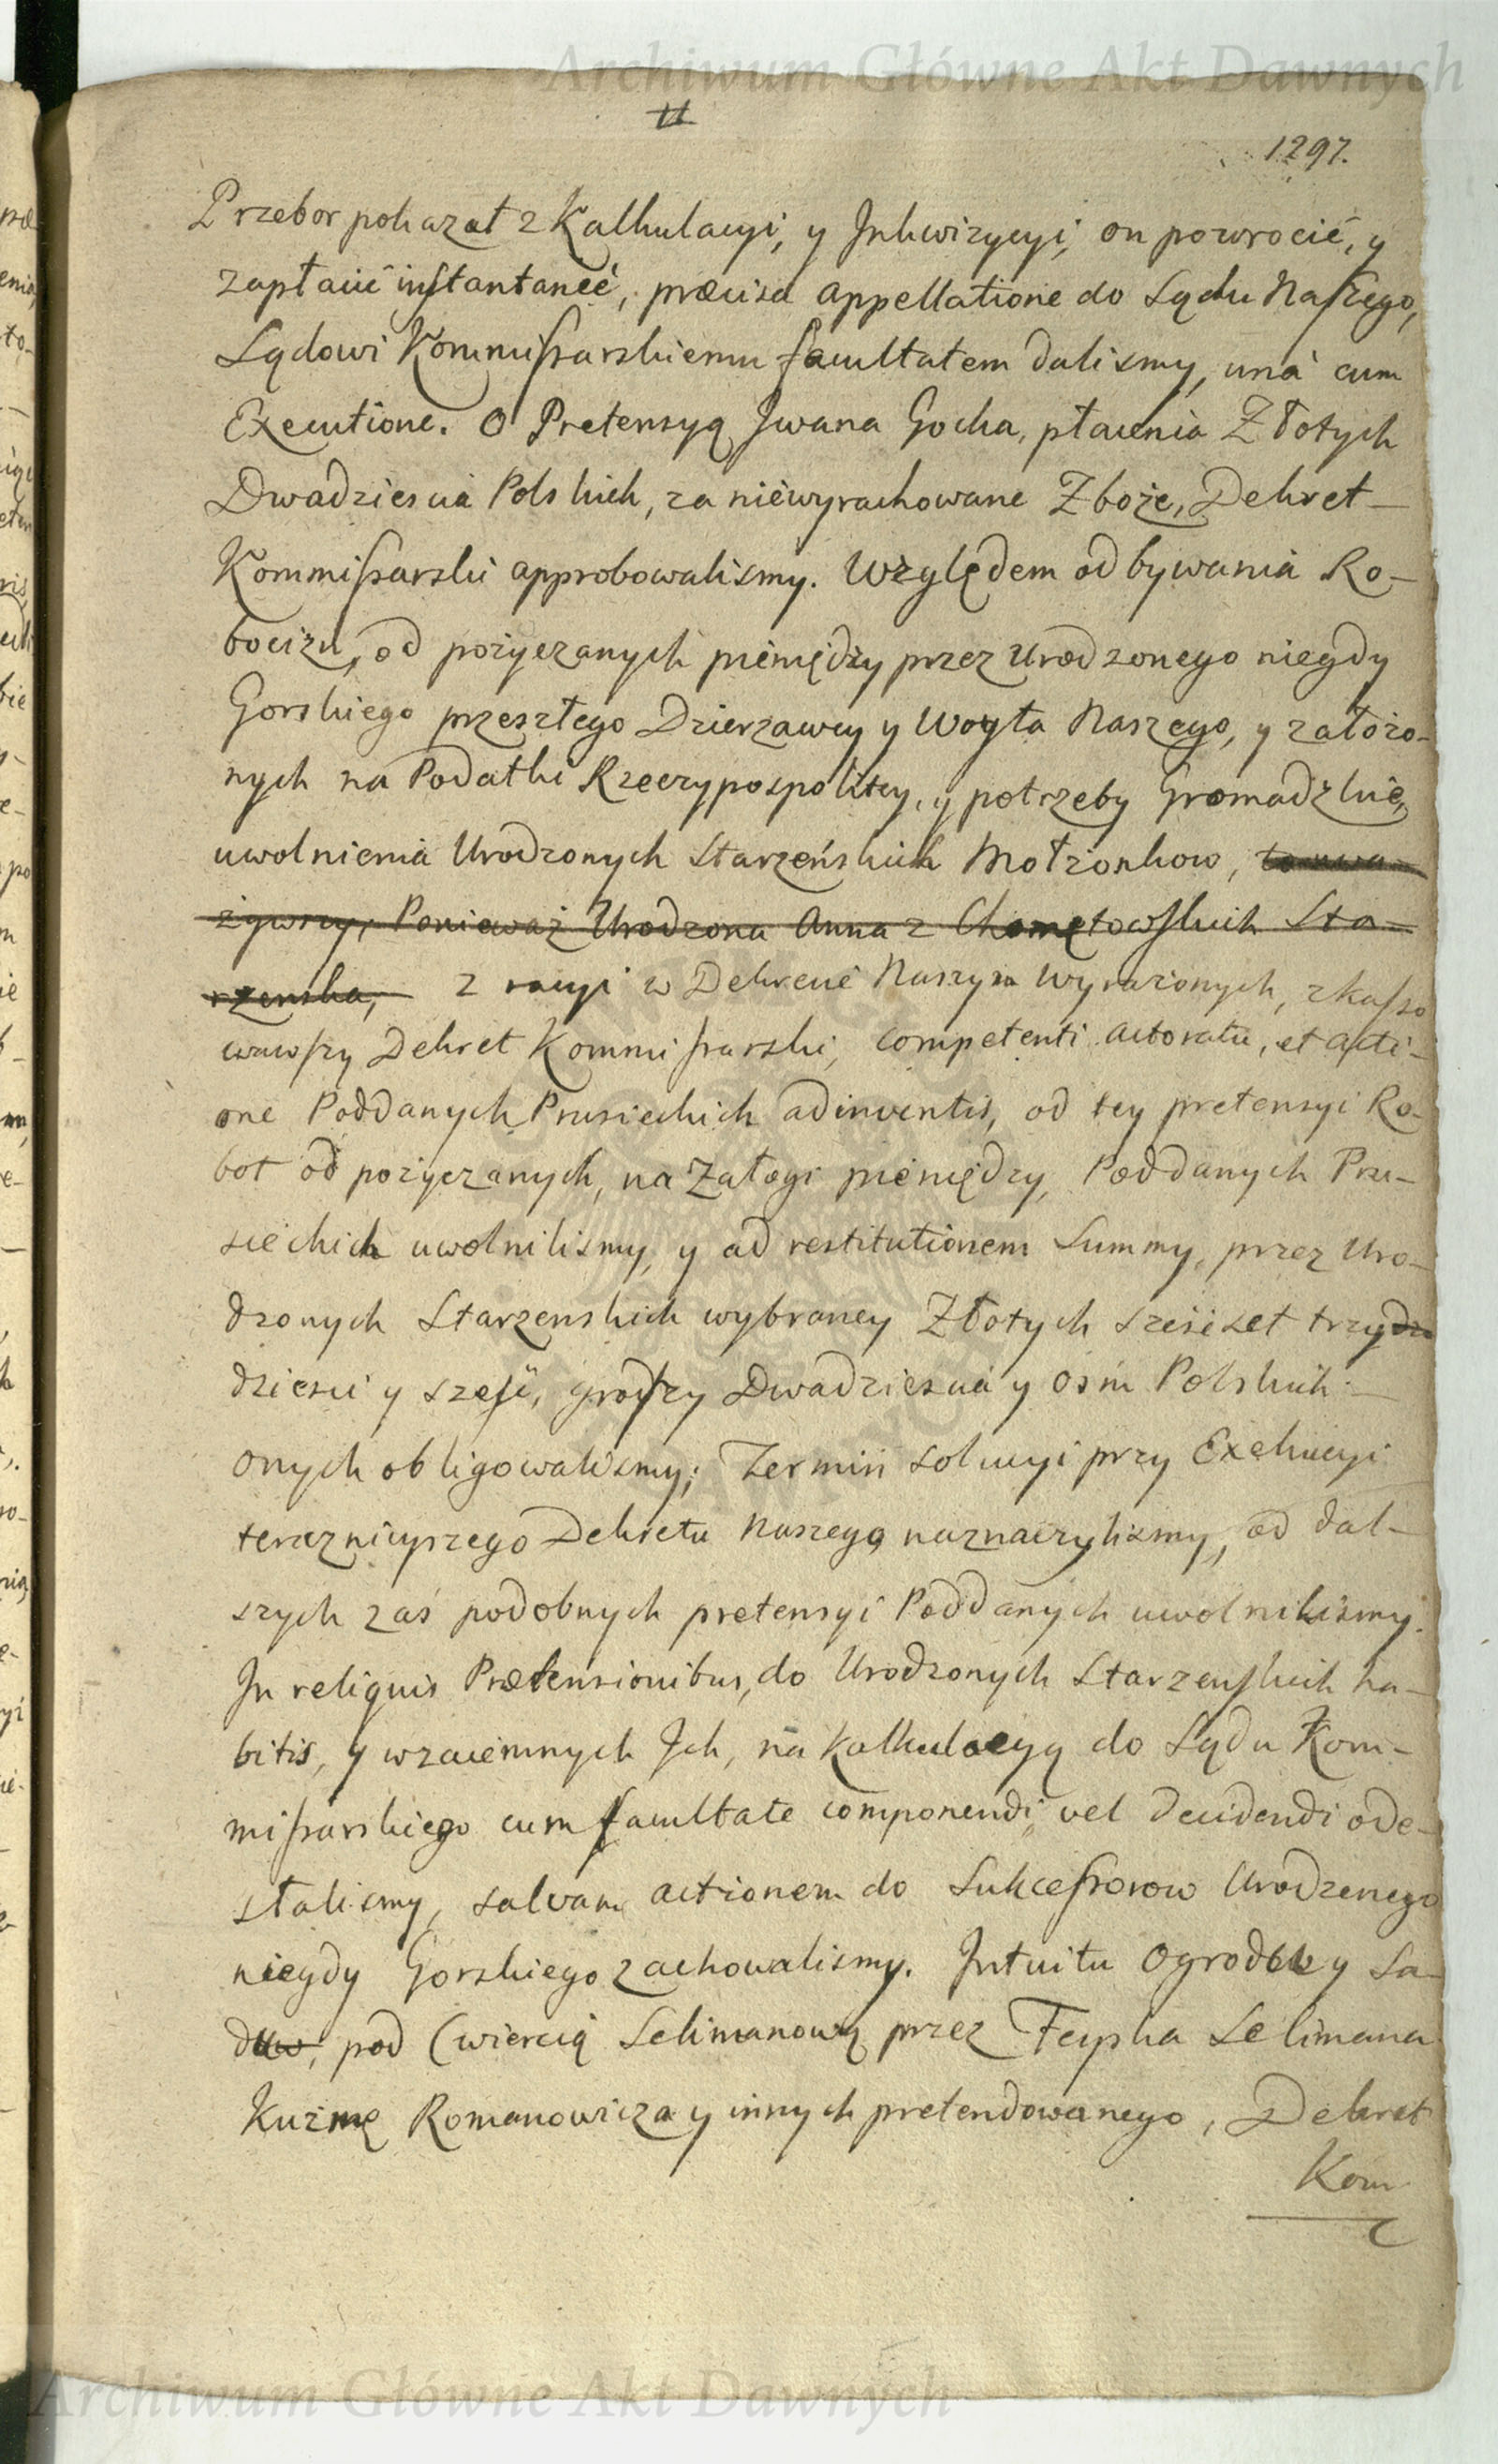 Archiwum Główne Akt Dawnych
tt
1297.
Przebor pokazał z Kalkulacyi, y Inkwizycyi, on powrocić, y
zapłacić instantaneè, præcisa appellatione do Sądu Naszego,
Sądowi Kommissarskiemu facultatem dalismy, unà cum
Executione. O Pretensyą Jwana Gocha, płacenia Złotych
Dwadziescia Polskich, za niewyrachowane Zboże, Dekret
Kommissarski approbowalismy. Względem odbywania Ro-
bocizn, od pożyczanych pieniędzy przez Urodzonego niegdy
Gorskiego przeszłego Dzierzawcy y Woyta Naszego, y założo-
nych na Podatki Rzeczypospolitey, y potrzeby Gromadzkie,
uwolnienia Urodzonych Starzeńskich Małżonkow, to uwa-
żywszy, Ponieważ Urodzona Anna z Chometowskich Sta-
rzenska, z racyi w Dekrecie Naszym wyrażonych, zkasso
wawszy Dekret Kommissarski, competenti actoratu, et acti-
one Poddanych Prusieckich adinventis, od tey pretensyi Ro-
bot od pożyczanych, na Załogi pieniędzy, Poddanych Pru-
sieckich uwolnilismy, y ad restitutionem Summy, przez Uro-
dzonych Starzenskich wybraney Złotych sześćset trzydz
dziesci y sześć, groszy Dwadziescia y osm Polskich
onych obligowalismy; Termin solucyi przy Exekucyi
teraznieyszego Dekretu Naszego naznaczylismy, od dal-
szych zaś podobnych pretensyi Poddanych uwolnilismy.
In reliquis Prætensionibus, do Urodzonych Starzenskich ha-
bitis, y wzaiemnych Jch, na Kalkulacyą do Sądu Kom-
missarskiego cum facultate componendi vel decidendi ode-
słalismy, salvam actionem do Sukcessorow Urodzenego
niegdy Gorskiego zachowalismy. Intuitu Ogrodka y Sa-
duw, pod Cwiercią Selimanową przez Feyska Selimana
Kuźmę Romanowicza y innych pretendowanego, Dekret
Kom
Archiwum Główne Akt Dawnych